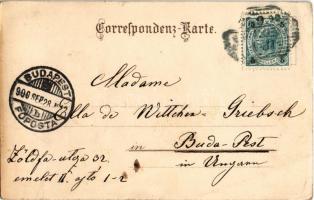 Correspondenz-Karte.
BUDAPEST
906 SEP 28
FŐPOSTA
Madame
Ella de Wittchen-Griebsch
in Buda-Pest
in Ungarn
Zöldfa-utcza 32.
emelet II. ajtó 1-2